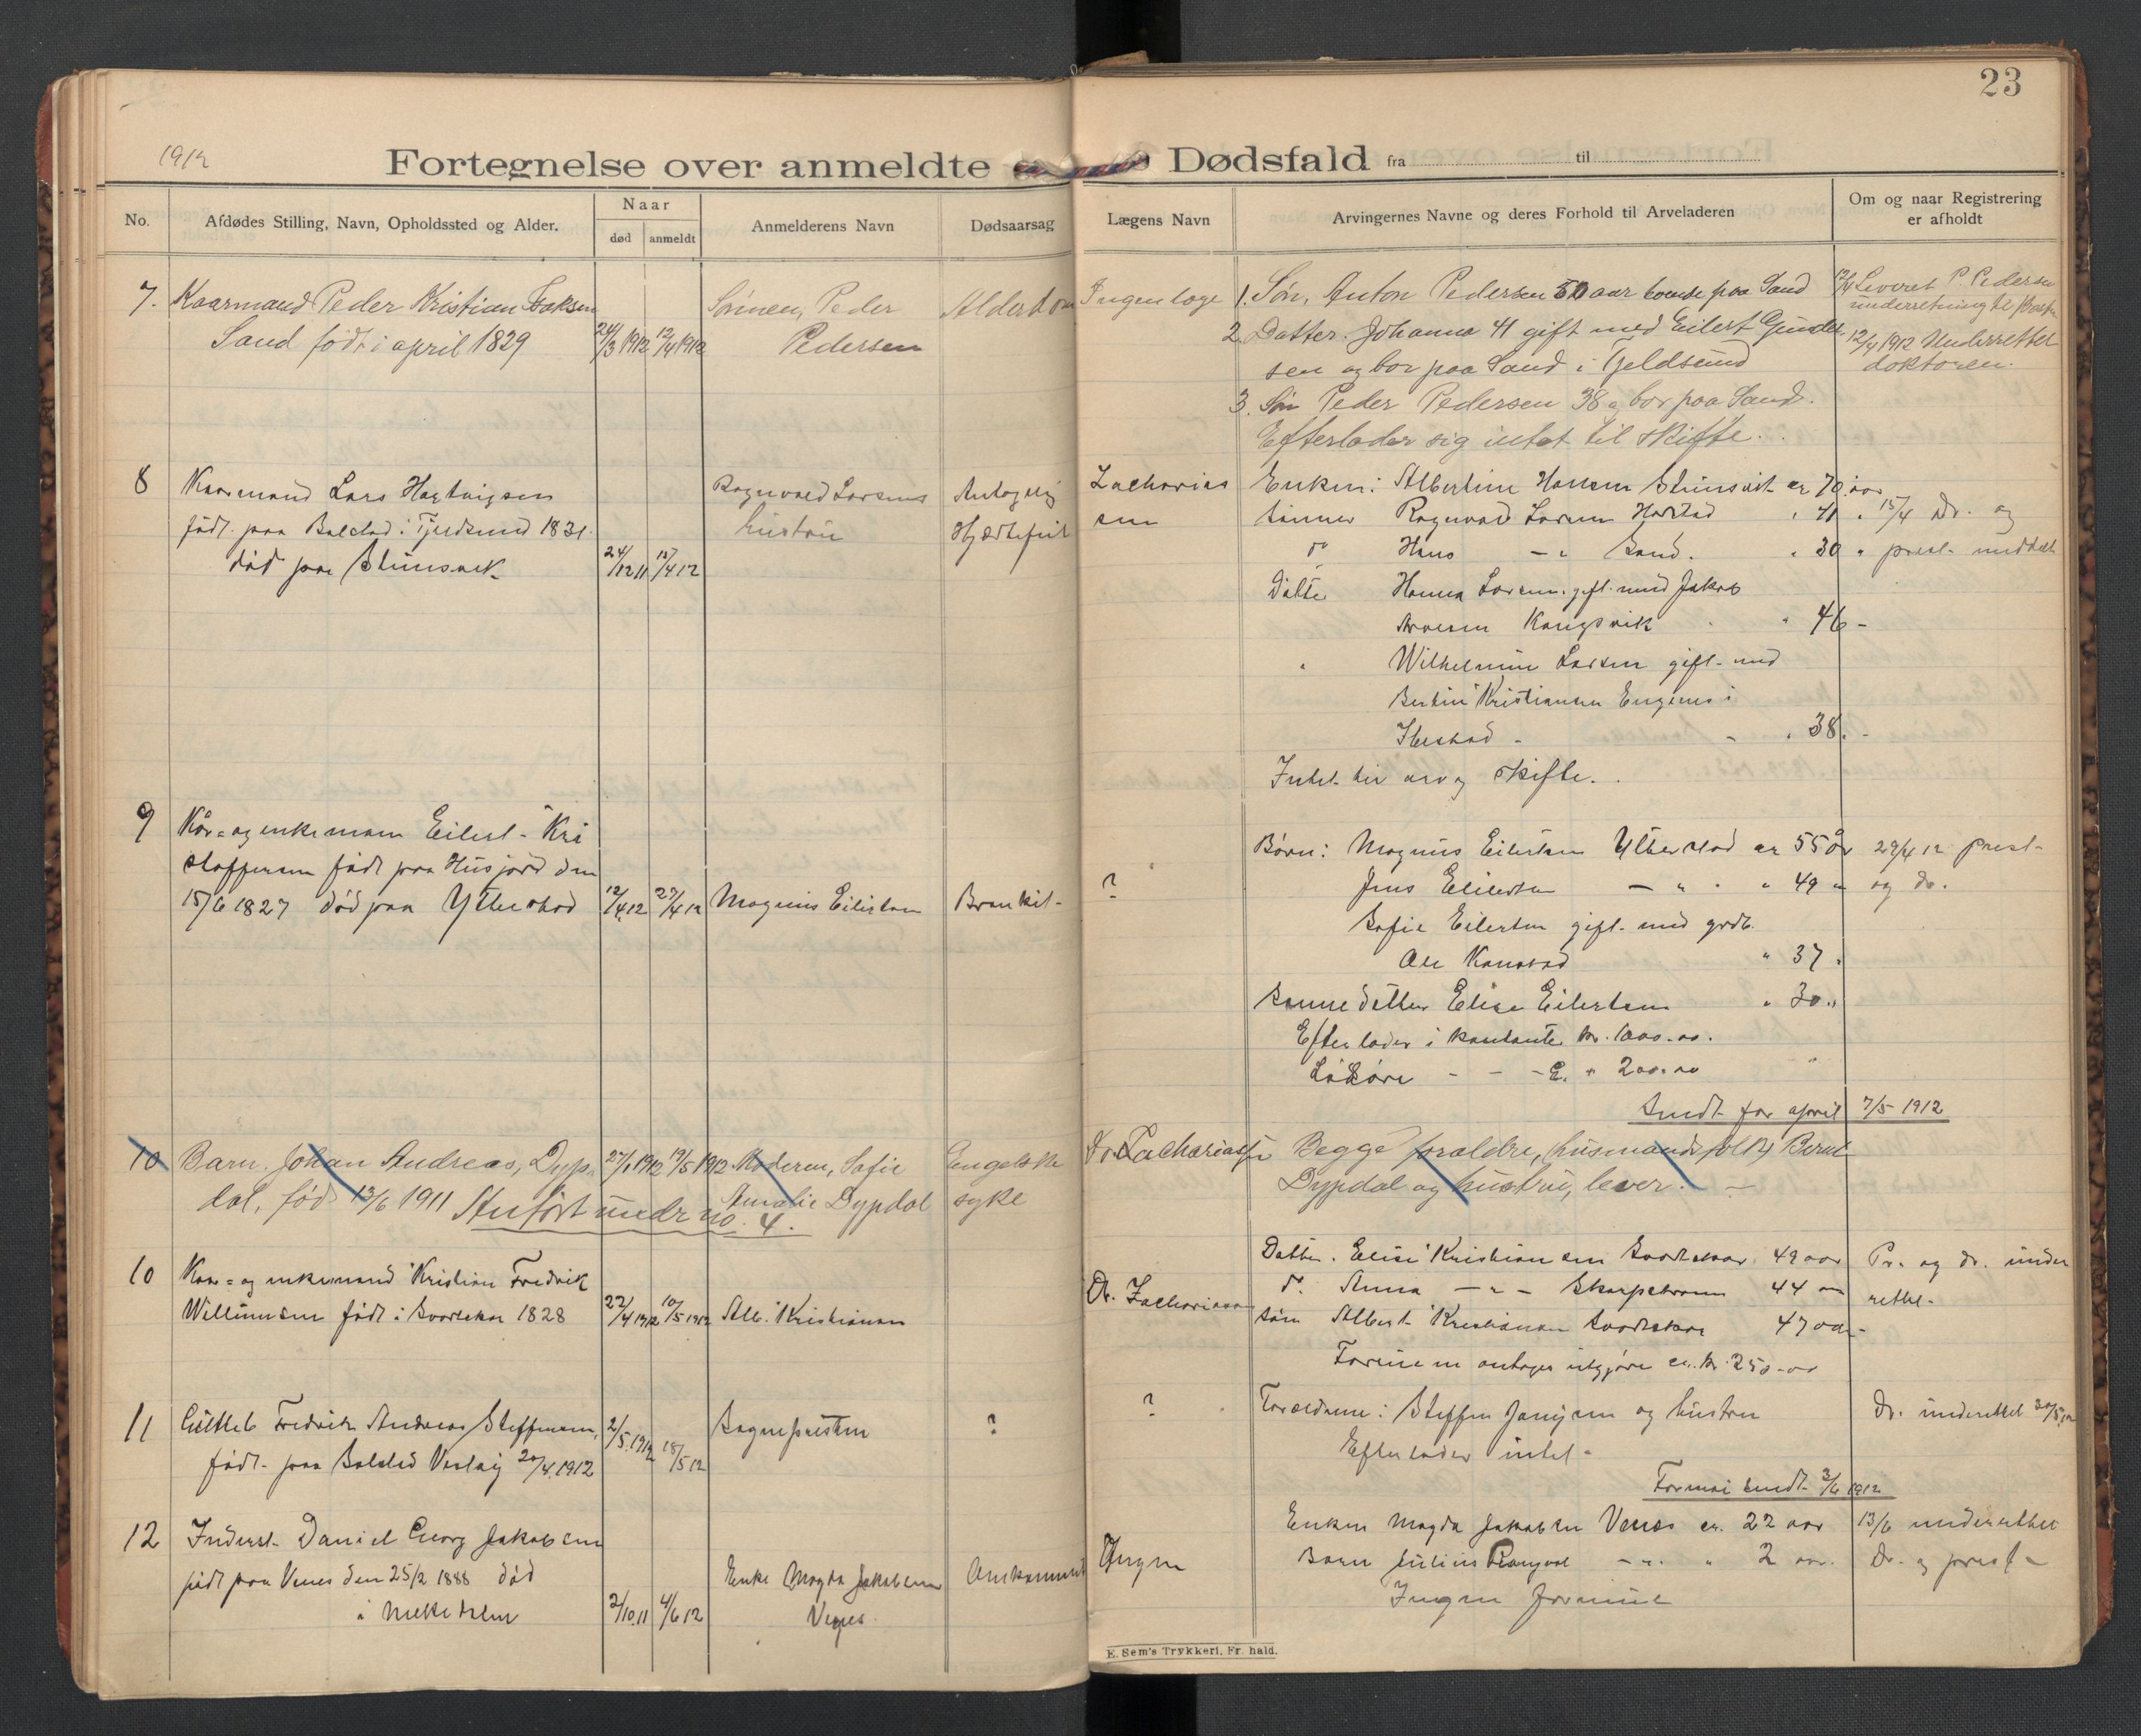 23
1912
Fortegnelse over anmeldte Dødsfald fra til
No.
Afdødes Stilling, Navn, Opholdssted og Alder.
Naar
død
anmeldt
Anmelderens Navn
Dødsaarsag
Lægens Navn
Arvingernes Navne og deres Forhold til Arveladeren
Om og naar Registrering
er afholdt
7. Kaarmand Peder Kristian
Sand født i april 1829
24/3 1912
12/4 1912
Sønnen, Peder
Pedersen
Alderdom
Ingen læge
1. Søn, Anton Pedersen 50 aar boende paa Sand
2 Datter. Johanna 41 gift med Eilert
sen og bor paa Sand i Tjeldsund
3. Søn Peder Pedersen 38 a bor paa Sand.
Efterlader sig intet til skifte.
12/4 Leveret P. Pedersen
underretning til
12/4 1912 Underrettet
doktoren.
8 Kaarmand Lars Hartvigsen
født paa Balstad i Tjeldsund 1831.
død paa
24/12 11
15/4 12
Ragnvald Larsens
hustru
Antagelig
Hjertefeil
Zacharias
sen
Enken: Albertine Hansen er 70 aar
Sønner Ragnvald Larsen Harstad " 41 "
do Hans - " Sand. " 30 "
Døtre Hanna Larsen gift med Jakob
Arnesen Kongsvik " 46 -
" Wilhelmine Larsen gift med
Kristiansen Engenes i
Ibestad - " 38. -
Intet til arv og skifte.
15/4 Dr. og
prest
9 Kår= og enkemann Eilert Kri
stoffersen født paa Husjord den
15/6 1827 død paa Ytterstad
12/4 12
27/4 12
Magnus Eilertsen
?
Børn: Magnus Eilertsen Ytterstad er 55 år
Jens Eilertsen - " " " 49 "
Sofie Eilertsen gift med grdb.
Ole Kanstad " 37 "
Sønnedatter Elise Eilertsen " 30 "
Efterlader i kontante kr. 1000.00.
Løsøre - - - " 200.00
29/4 12 prest
og dr.
Sendt for april 7/5 1912
10 Barn. Johan Andreas, Dyp
dal, født 13/6 1911 Anført under no. 4.
27/1 1912
19/5 1912
Moderen, Sofie
Amalie Dypdal
Engelske
syke
Dr. Zachariassen
Begge foraldre, husmandsfolk
Dypdal og hustru, lever. -
10 Kaar= og enkemand Kristian Fredrik
Willumsen født i 1828
22/4 1912
10/5 1912
Alb. Kristiansen
Dr. Zachariassen
Datter. Elise Kristiansen 49 aar
do. Anna - " - 44 "
Søn Albert Kristiansen 47 aar
Formuen antages utgjøre ca. kr. 250.00
Pr. og dr. under
rettet
11 Fredrik Andreas Steffensen,
født paa 20/4. 1912
2/5 1912
18/5 12
Sognepristen
?
?
Foraldrene: Steffen Jensen og hustru
Efterlader intet
Dr. underrettet 20/5 12
For mai sendt 3/6 1912
12 Inderst. Daniel Georg Jakobsen
født paa Venes den 25/2 1888 død
i
2/10 11
4/6 12
Enke Magda Jakobsen
Venes
Omkommet
Ingen
Enken Magda Jakobsen Venes er. 22 aar
Barn Julius - " " 2 aar.
Ingen formue
13/6 underrettet
Dr. og prest -
E. Sem's Trykkeri, Fr. hald.